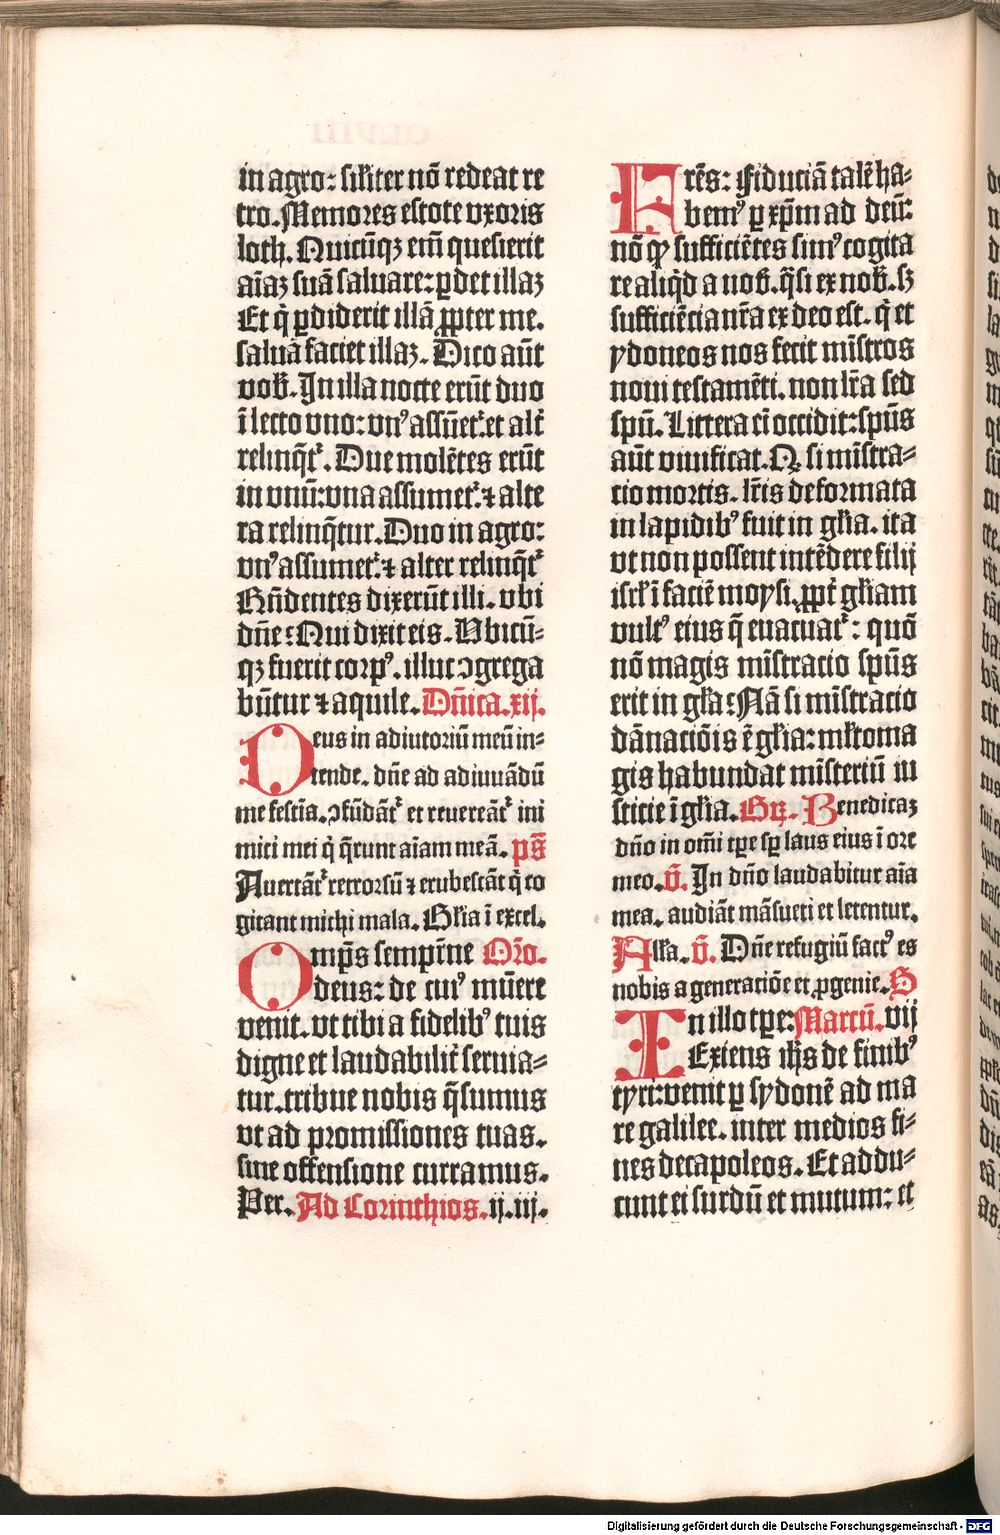 in agro: sil̄iter nō redeat re
tro. Memores estote vxoris
loth. Quicūqꝫ em̄ quesierit
aīaꝫ suā saluare: ꝑdet illaꝫ
Et q̄ ꝑdiderit illā ꝓpter me.
saluā faciet illaꝫ. Dico aūt
vob̄. In illa nocte erūt duo
ī lecto vno: vnꝰ assūet᷑. et alt̄
relinq̄t᷑. Due molētes erūt
in vnū: vna assumet᷑. ⁊ alte
ra relinq̄tur. Duo in agro:
vnꝰ assumet᷑. ⁊ alter relinq̄t᷑
Rn̄dentes dixerūt illi. vbi
dn̄e? Qui dixit eis. Vbicū⸗
qꝫ fuerit corpꝰ. illuc ↄgrega
bn̄tur ⁊ aquile. Dn̄ica. xij.
Deus in adiutoriū meū in⸗
tende. dn̄e ad adiuuādū
me festīa. ↄfūdāt᷑ et reuereāt᷑ ini
mici mei q̄ q̄runt aīam meā. ps̄
Auertāt᷑ retrorsū ⁊ erubescāt q̄ co
gitant michi mala. Gl̄ia ī excel.
Omp̄s sempit̄ne Or̄o.
deus: de cuiꝰ mūere
venit. vt tibi a fidelibꝰ tuis
digne et laudabilit̄ seruia⸗
tur. tribue nobis q̄sumus
vt ad promissiones tuas.
sine offensione curramus.
Per. Ad Corinthios. ij. iij.
Frēs: Fiduciā talē ha⸗
bemꝰ ꝑ xp̄m ad deū:
nō ꝙ sufficiētes simꝰ cogita
re aliq̄d a nob̄. q̄si ex nob̄. sꝫ
sufficiēcia nr̄a ex deo est. q̄ et
ydoneos nos fecit mīstros
noui testamēti. non lr̄a sed
spū. Littera eī occidit: spūs
aūt viuificat. Q si mīstra⸗
cio mortis. lr̄is deformata
in lapidibꝰ fuit in gl̄ia. ita
vt non possent intēdere filij
isrl̄ ī faciē moysi. ꝓpt̄ gl̄iam
vultꝰ eius q̄ euacuat᷑: quō
nō magis mīstracio spūs
erit in gl̄ia? Nā si mīstracio
dānaciōis ē gl̄ia: ml̄toma
gis habundat mīsteriū iu
sticie ī gl̄ia. Gꝝ. Benedicaꝫ
dn̄o in om̄i tꝑe sꝑ laus eius ī ore
meo. v̄. In dn̄o laudabitur aīa
mea. audiāt māsueti et letentur.
All̄a. v̄. Dn̄e refugiū factꝰ es
nobis a generaciōe et ꝓgenie. S
In illo tꝑe: Marcū. vij
Exiens ih̄s de finibꝰ
tyri: venit ꝑ sydonē ad ma
re galilee. inter medios fi⸗
nes decapoleos. Et addu⸗
cunt ei surdū et mutum: et
Digitalisierung gefördert durch die Deutsche Forschungsgemeinschaft - DFG